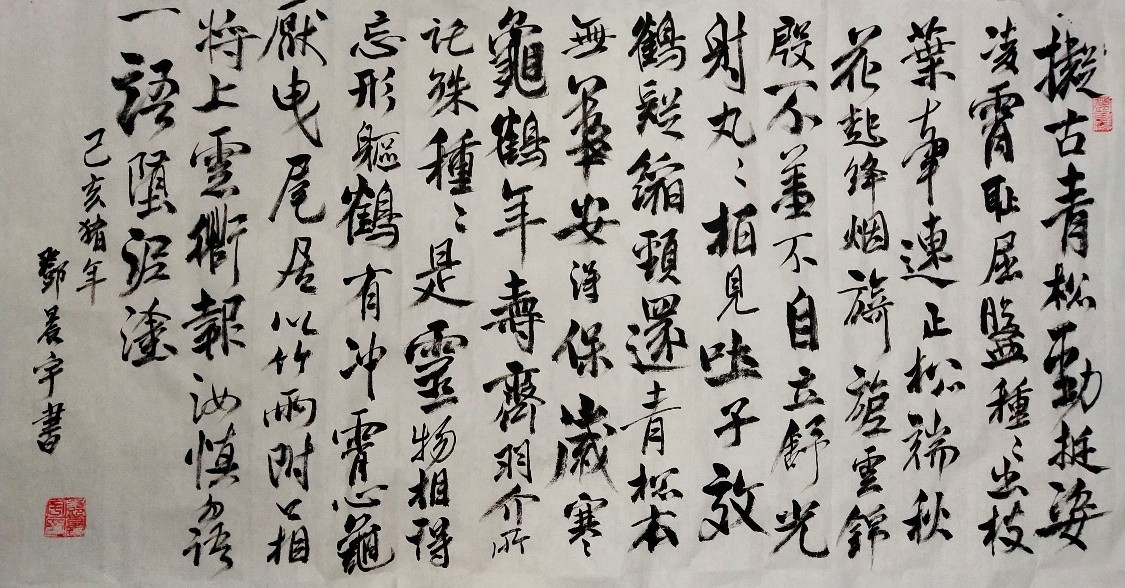 擬古青松勁挺姿
凌霄恥屈盤種〻出枝
葉牽連上松端秋
花起絳烟旖旎雲錦
殷不羞不自立舒光
射丸〻柏見吐子效
鶴疑縮頸還青松本
無華安得保歲寒
龜鶴年壽齊羽介所
託殊種〻是靈物相得
忘形軀鶴有冲霄心龜
厭曳尾居以竹兩附口相
将上雲衢報汝慎勿語
一語墮泥塗
己亥猪年
鄧晨宇書